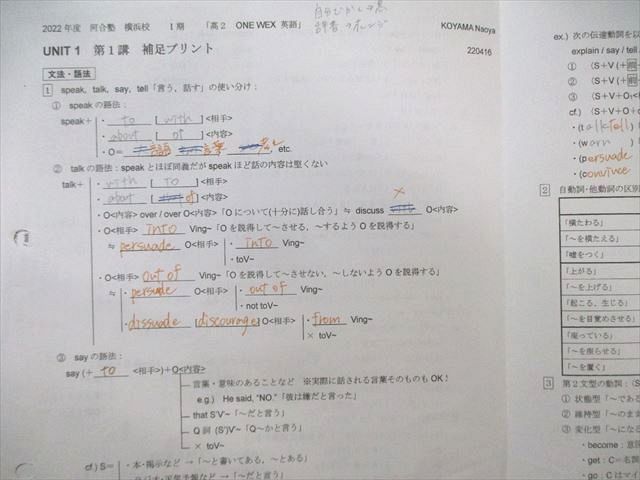 自分むかし→黒
辞書→オレンジ
2022年度 河合塾 横浜校 Ⅰ期 「高2 ONE WEX 英語」 KOYAMA Naoya
UNIT 1 第1講 補足プリント 220416
文法・語法
1 speak, talk, say, tell「言う、話す」の使い分け：
① speak の語法：
speak+ ・ to [ with ] <相手>
・ about [ of ] <内容>
・O= 言語 言葉, etc.
② talk の語法：speak とほぼ同義だが speak ほど話の内容は堅くない
talk+ ・ with [ to ] <相手>
・ about [ of ] <内容>
・O<内容> over / over O<内容>「O について(十分に)話し合う」≒ discuss × O<内容>
・O<相手> into Ving~「O を説得して~させる、~するよう O を説得する」
≒ persuade O<相手> ・ into Ving~
・toV~
・O<相手> out of Ving~「O を説得して~させない、~しないよう O を説得する」
≒ ・persuade O<相手> ・ out of Ving~
・not toV~
・dissuade [discourage] O<相手> ・ from Ving~
× toV~
③ say の語法：
say (+ to <相手>)+O<内容>
言葉・意味のあることなど ※実際に話される言葉そのものも OK！
e.g.) He said, “NO.”「彼は嫌だと言った」
that S'V'~「~だと言う」
Q 詞 (S')V'~「Q~かと言う」
× toV~
cf.) S= ・本・掲示など →「~と書いてある、~とある」
→「~だと言う」
ex.) 次の伝達動詞を
explain / say / tell
① (S+V (+前
② (S+V (+前
③ (S+V+O₁<
cf.) (S+V+O+
・(talk tell)
・(warn )
・(persuade
・(convince
2 自動詞・他動詞の区別
「横たわる」
「~を横たえる」
「嘘をつく」
「上がる」
「~を上げる」
「起こる、生じる」
「~を目覚めさせる」
「座っている」
「~を座らせる」
「~を置く」
3 第2文型の動詞：(S
① 状態型「~である
② 維持型「~のまま
③ 変化型「~になる
・become：意図
・get：C=名詞
・go：C はマイ